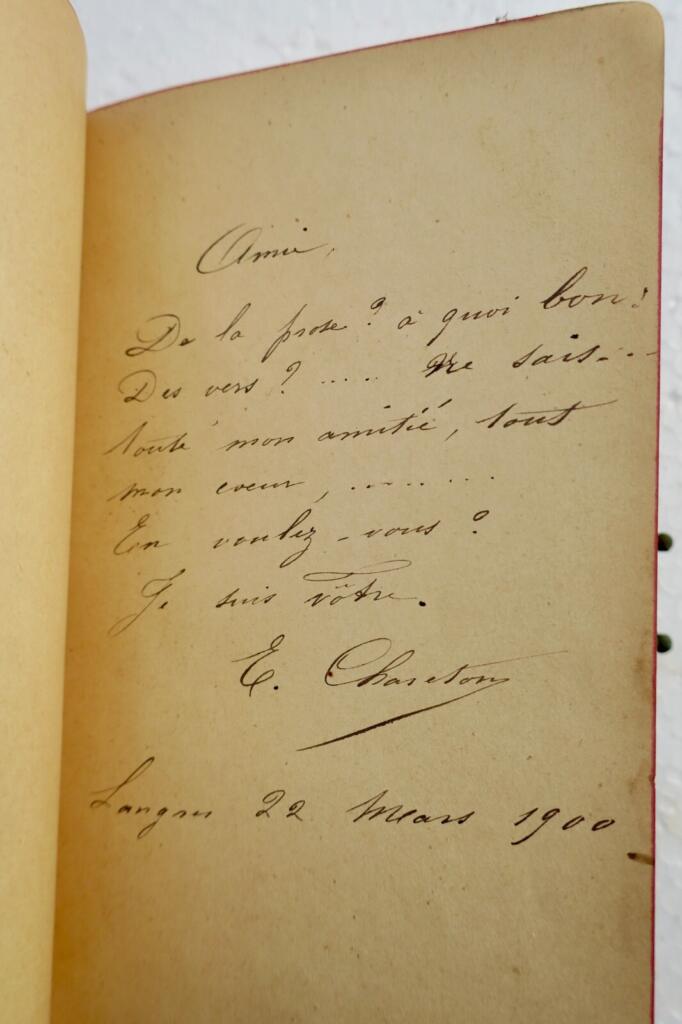 Amie,
De la prose? à quoi bon!
Des vers? ..... ne sais...
toute mon amitié, tout
mon coeur, ........
En voulez-vous?
Je suis vôtre.
E. Chareton
Langres 22 Mars 1900